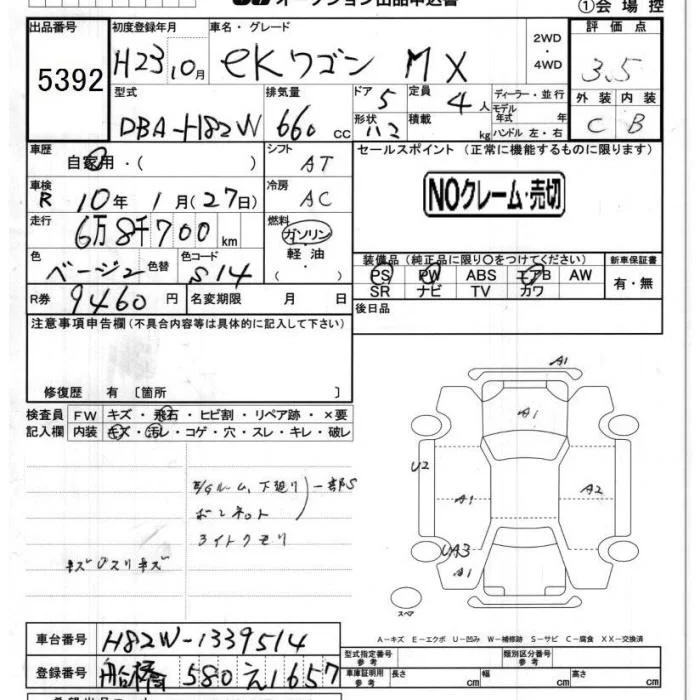 オークション出品申込書
①会場控
出品番号 初度登録年月 車名・グレード 2WD・4WD 評価点
5392 H23 10月 eKワゴン MX 3.5
型式 排気量 ドア 5 定員 4人 ディーラー・並行 外装 内装
DBA-H82W 660cc 形状 積載 kg モデル年式 年 ハンドル 左・右 C B
車歴 シフト セールスポイント (正常に機能するものに限ります)
自家用・( ) AT
車検 冷房 NOクレーム・売切
R 10年 1月(27日) AC
走行 燃料
6万8千700km ガソリン・軽油・
色 色替 色コード 装備品 (純正品に限り○をつけてください) 新車保証書
ベージュ S14 PS PW ABS エアB AW 有・無
SR ナビ TV カワ
R券 9460円 名変期限 月 日 後日品
注意事項申告欄(不具合内容等は具体的に記入して下さい)
修復歴 有 〔箇所 〕
検査員記入欄 FW キズ・飛石・ヒビ割・リペア跡・×要
内装 キズ・汚レ・コゲ・穴・スレ・キレ・破レ
ルーム、下廻り 一部S
ボンネット
ライトクモリ
キズ スリキズ
A1
A1
U2
A1 A2
UA3
A1
スペア
A-キズ E-エクボ U-凹み W-補修跡 S-サビ C-腐食 XX-交換済
車台番号 H82W-1339514
型式指定番号 参考 類別区分番号 参考
登録番号 船橋 580 え1657
車庫証明用 参考 長さ cm 幅 cm 高さ cm